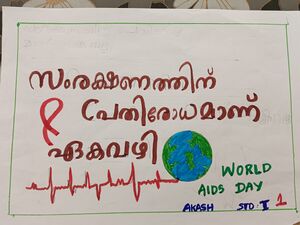 സംരക്ഷണത്തിന്
പ്രതിരോധമാണ്
ഏകവഴി
WORLD
AIDS DAY
AKASH STD. I 1